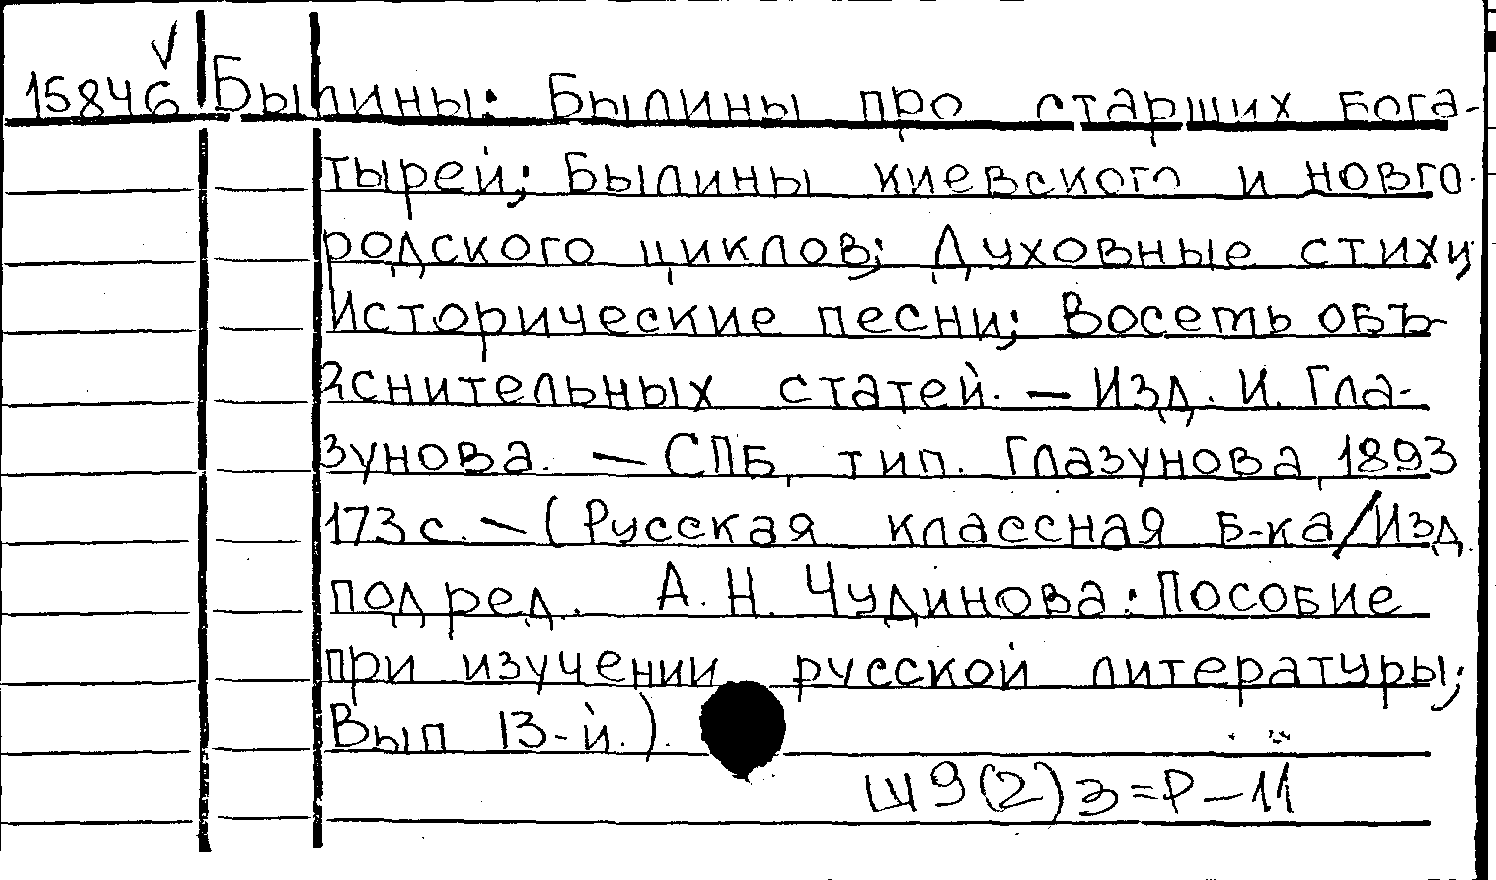 15846 Былины: Былины про старших бога-
тырей; Былины киевского и новго-
родского циклов; Духовные стихи
Исторические песни; Восеть объ-
яснительных статей. — Изд. И. Гла-
зунова. — СПБ, тип. Глазунова, 1893
173 с. — (Русская классная б-ка/Изд.
под ред. А. Н. Чудинова: Пособие
при изучении русской литературы;
Вып 13-й.).
Ш9(2)3=Р-11